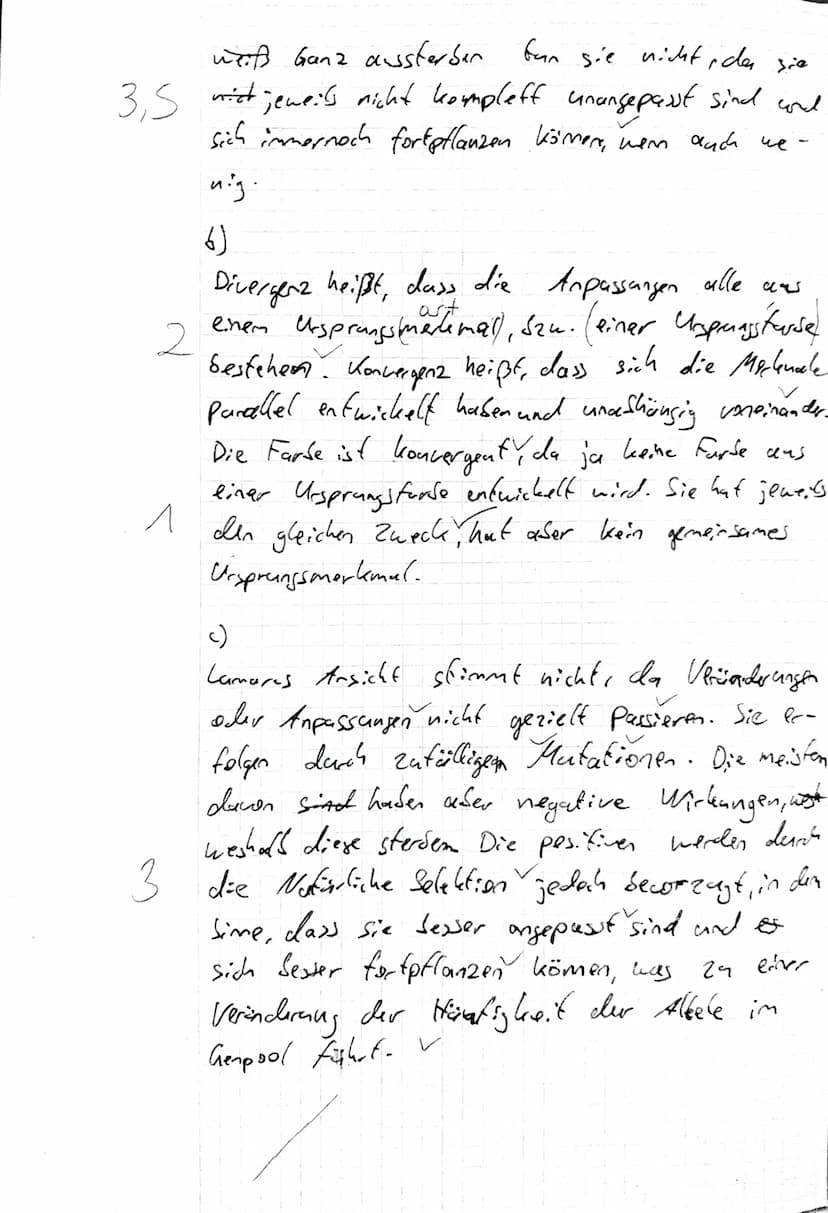 weiß Ganz aussterben tun sie nicht, da sie
3,5 nict jeweils nicht komplett unangepasst sind und
sich immernoch fortpflanzen können, wenn auch we-
nig.
b)
Divergenz heißt, dass die Anpassungen alle aus
art
einem Ursprungs(merkmal), bzw. (einer Ursprungsfarbe)
2 bestehen. Konvergenz heißt, dass sich die Merkmale
parallel entwickelt haben und unabhängig voneinander.
Die Farbe ist konvergent, da ja keine Farbe aus
einer Ursprungsfarbe entwickelt wird. Sie hat jeweils
1 den gleichen Zweck, hat aber kein gemeinsames
Ursprungsmerkmal.
c)
Lamarcs Ansicht stimmt nicht, da Veränderungen
oder Anpassungen nicht gezielt passieren. Sie er-
folgen durch zufälligem Mutationen. Die meisten
davon sind haben aber negative Wirkungen,
weshalb diese sterben. Die positiven werden durch
3 die Natürliche Selektion jedoch bevorzugt, in dem
Sinne, dass sie besser angepasst sind und es
sich besser fortpflanzen können, was zu einer
Veränderung der Häufigkeit der Allele im
Genpool führt.